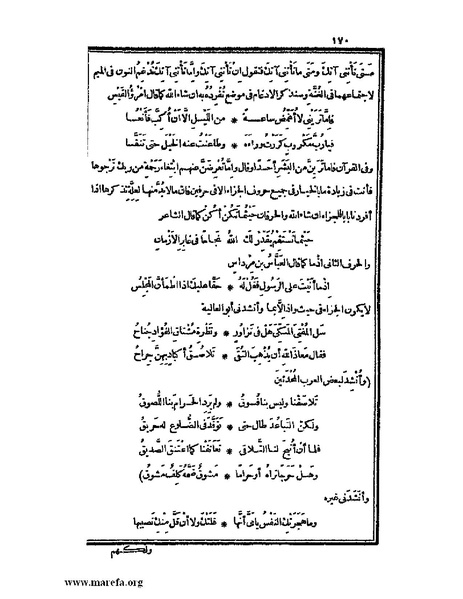 ١٧٠
متى تأتنى آتك ومتى ما تأتنى آتك فتقول ان تأتنى آتك واِمَّا تأتنى آتك تدغم النون فى الميم
لاجتماعهما فى الغُنَّة وسنذكر الادغام فى موضع نفرده به ان شاء الله كما قال امرؤ القَيْس
فامَّا تَرَيْنِى لا أُغَمِّضُ ساعــة * من الليــل الاَّ أن أُكِبَّ فَأَنْعُسا
فيارُبَّ مَكْروبٍ كَرَرْتُ وراءَه * وطاعَنْتُ عنه الخَيْلَ حتى تَنَفَّسا
وفى القرآن فامَّا تَرَيِنَّ من البَشَرِ أحَدًا وقال واِمَّا تُعْرِضَنَّ عنهــم ابتغاءَ رَحْمة من ربك تَرْجوها
فأنت فى زيادة ما بالخيار فى جميع حروف الجزاء الا فى حرفين فان ما لا بدَّ منها لعلَّة نذكرها اذا
أفردنا بابا للجزاء ان شاء الله والحرفان حيثما تكن أكن كما قال الشاعر
حيثما تَسْتَقِمْ يُقَدِّرْ لك اللهُ نَجاحًا فى غابِر الأزْمان
والحرف الثانى اذما كما قال العبّاسُ بن مِرْداس
اذما أتَيْتَ على الرسولِ فقُلْ له * حقًّا عليك اذا اطْمَأَنَّ المَجْلِس
لا يكون الجزاء فى حيث واذ الاَّ بما وأنشدنى أبو العالية
سَلِ المُفْتِىَ المَكِّىَّ هل فى تَزاوُرٍ * ونَظْرةِ مُشْتاقِ الفُؤادِ جُناحُ
فقال مَعاذَ اللهِ أن يُذْهِبَ التُّقَى * تَلاصُقُ أكبادٍ بِهِنَّ جِراحُ
(وأُنْشِدَ لبعض العرب المُحْدَثين
تَلاصَقْنا وليس بنا فُسوقٌ * ولم يُرِدِ الحَــرامَ بنا اللُّصوقُ
ولكنّ التباعُدَ طال حتى * تَوَقَّدَ فى الضُّلوعِ له حريقُ
فلما أن أُتيحَ لنا التَّلاقِى * تَعانَقْنا كما اعْتَنَقَ الصَّديقُ
وهــل حَرَجًا تراه أو حَراما * مَشوقٌ ضَمَّه كَلِفٌ مَشوقُ)
وأنشدنى غيره
وما هَجَرَتْكِ النَّفْسُ يا مَىَّ أنَّها * قَلَتْكِ ولا أن قَلَّ مِنْكِ نَصيبُها
ولكنهم
www.marefa.org